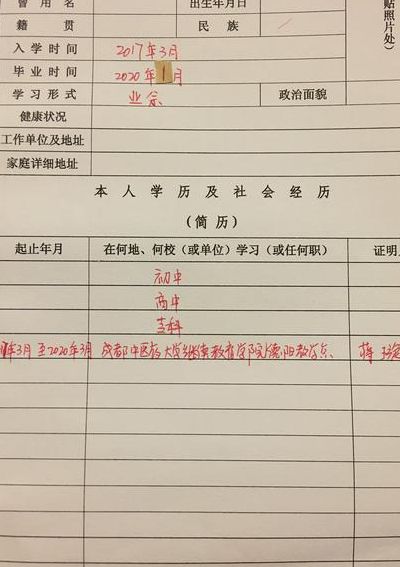 曾用名 出生年月日
籍贯 民族
贴照片处）
入学时间 2017年3月
毕业时间 2020年1月
学习形式 业余 政治面貌
健康状况
工作单位及地址
家庭详细地址
本人学历及社会经历
（简历）
起止年月 在何地、何校（或单位）学习（或任何职） 证明
初中
高中
专科
年3月至2020年3月 成都中医药大学继续教育学院德阳教学点、 蒋